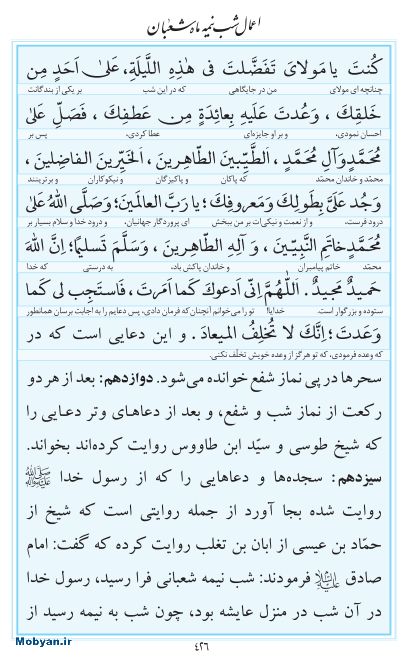 اعمال شب نیمه ماه شعبان
كُنتَ يا مَولايَ تَفَضَّلتَ فى هٰذِهِ اللَّيلَةِ، عَلىٰ اَحَدٍ مِن
چنانچه ای مولای من در جایگاهی که در این شب بر یکی از بندگانت
خَلقِكَ ، وَعُدتَ عَلَيهِ بِعائِدَةٍ مِن عَطفِكَ ، فَصَلِّ عَلىٰ
احسان نمودی، و بر او جایزه‌ای عطا کردی، پس بر
مُحَمَّدٍ وَآلِ مُحَمَّدٍ ، اَلطَّيِّبينَ الطّاهِرينَ ، اَلخَيِّرينَ الفاضِلينَ ،
محمّد و خاندان محمّد که پاکان و پاکیزگان و نیکوکاران و برترینند
وَجُد عَلَىَّ بِطَولِكَ وَمَعروفِكَ ؛ يا رَبَّ العالَمينَ؛ وَصَلَّى اللهُ عَلىٰ
درود فرست، و از نعمت و نیکی‌ات بر من ببخش ای پروردگار جهانیان، و درود خدا و سلام بسیار بر
مُحَمَّدٍ خاتِمِ النَّبِيّينَ ، وَ آلِهِ الطّاهِرينَ ، وَسَلَّمَ تَسليمًا؛ اِنَّ اللهَ
محمّد خاتم پیامبران و خاندان پاکش باد، به درستی که خدا
حَميدٌ مَجيدٌ. اَللّٰهُمَّ اِنّى اَدعوكَ كَما اَمَرتَ ، فَاستَجِب لى كَما
ستوده و بزرگوار است. خدایا! تو را می‌خوانم آنچنان که فرمان دادی، پس دعایم را به اجابت برسان همانطور
وَعَدتَ؛ اِنَّكَ لا تُخلِفُ الميعادَ. و این دعایی است که در
که وعده فرمودی، که تو هرگز از وعده خویش تخلّف نکنی.
سحرها در پی نماز شفع خوانده می‌شود. دوازدهم: بعد از هر دو
رکعت از نماز شب و شفع، و بعد از دعاهای وتر دعایی را
که شیخ طوسی و سیّد ابن طاووس روایت کرده‌اند بخواند.
سیزدهم: سجده‌ها و دعاهایی را که از رسول خدا ﷺ
روایت شده بجا آورد از جمله روایتی است که شیخ از
حمّاد بن عیسی از ابان بن تغلب روایت کرده که گفت: امام
صادق علیه‌السلام فرمودند: شب نیمه شعبانی فرا رسید، رسول خدا
در آن شب در منزل عایشه بود، چون شب به نیمه رسید از
۴۲۶
Mobyan.ir